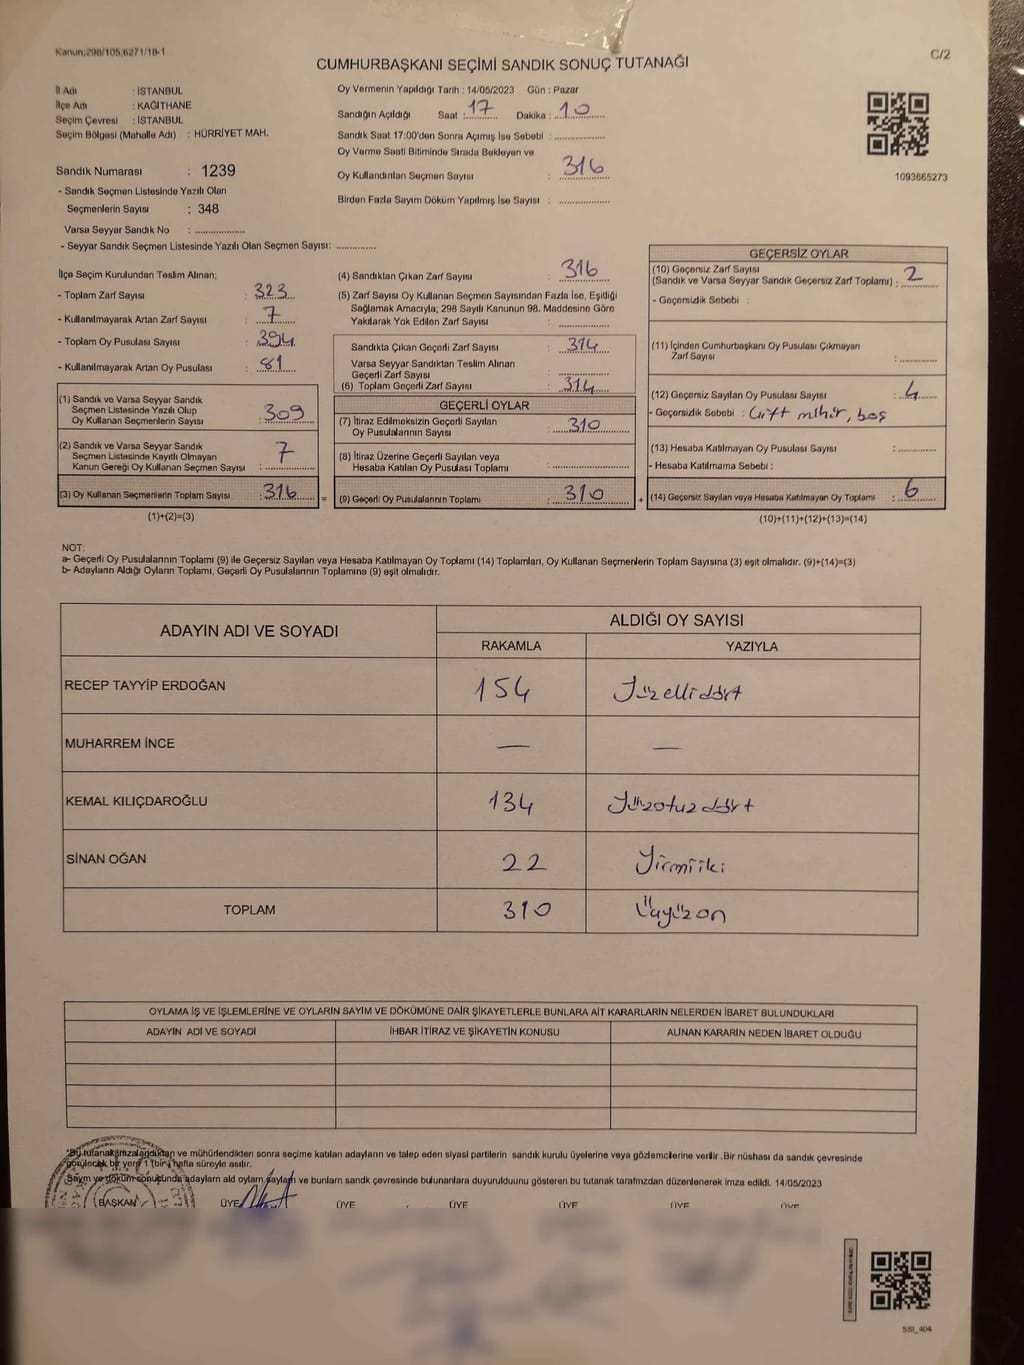 Kanun,298/105,6271/18-1
C/2
CUMHURBAŞKANI SEÇİMİ SANDIK SONUÇ TUTANAĞI
İl Adı : İSTANBUL
İlçe Adı : KAĞITHANE
Seçim Çevresi : İSTANBUL
Seçim Bölgesi (Mahalle Adı) : HÜRRİYET MAH.
Oy Vermenin Yapıldığı Tarih : 14/05/2023 Gün : Pazar
Sandığın Açıldığı Saat : 17 Dakika : 10
Sandık Saat 17:00'den Sonra Açımış İse Sebebi :
Oy Verme Saati Bitiminde Sırada Bekleyen ve
Oy Kullandırılan Seçmen Sayısı : 316
Birden Fazla Sayım Döküm Yapılmış İse Sayısı :
1093665273
Sandık Numarası : 1239
- Sandık Seçmen Listesinde Yazılı Olan
Seçmenlerin Sayısı : 348
Varsa Seyyar Sandık No :
- Seyyar Sandık Seçmen Listesinde Yazılı Olan Seçmen Sayısı:
İlçe Seçim Kurulundan Teslim Alınan;
- Toplam Zarf Sayısı : 323
- Kullanılmayarak Artan Zarf Sayısı : 7
- Toplam Oy Pusulası Sayısı : 394
- Kullanılmayarak Artan Oy Pusulası : 81
(1) Sandık ve Varsa Seyyar Sandık
Seçmen Listesinde Yazılı Olup
Oy Kullanan Seçmenlerin Sayısı : 309
(2) Sandık ve Varsa Seyyar Sandık
Seçmen Listesinde Kayıtlı Olmayan
Kanun Gereği Oy Kullanan Seçmen Sayısı : 7
(3) Oy Kullanan Seçmenlerin Toplam Sayısı : 316
(1)+(2)=(3)
(4) Sandıktan Çıkan Zarf Sayısı : 316
(5) Zarf Sayısı Oy Kullanan Seçmen Sayısından Fazla İse, Eşitliği
Sağlamak Amacıyla; 298 Sayılı Kanunun 98. Maddesine Göre
Yakılarak Yok Edilen Zarf Sayısı :
Sandıkta Çıkan Geçerli Zarf Sayısı : 314
Varsa Seyyar Sandıktan Teslim Alınan
Geçerli Zarf Sayısı :
(6) Toplam Geçerli Zarf Sayısı : 314
GEÇERLİ OYLAR
(7) İtiraz Edilmeksizin Geçerli Sayılan
Oy Pusulalarının Sayısı : 310
(8) İtiraz Üzerine Geçerli Sayılan veya
Hesaba Katılan Oy Pusulası Toplamı :
= (9) Geçerli Oy Pusulalarının Toplamı : 310 +
GEÇERSİZ OYLAR
(10) Geçersiz Zarf Sayısı
(Sandık ve Varsa Seyyar Sandık Geçersiz Zarf Toplamı) : 2
- Geçersizlik Sebebi :
(11) İçinden Cumhurbaşkanı Oy Pusulası Çıkmayan
Zarf Sayısı :
(12) Geçersiz Sayılan Oy Pusulası Sayısı : 4
- Geçersizlik Sebebi : Çift mühür, boş
(13) Hesaba Katılmayan Oy Pusulası Sayısı :
- Hesaba Katılmama Sebebi :
(14) Geçersiz Sayılan veya Hesaba Katılmayan Oy Toplamı : 6
(10)+(11)+(12)+(13)=(14)
NOT:
a- Geçerli Oy Pusulalarının Toplamı (9) ile Geçersiz Sayılan veya Hesaba Katılmayan Oy Toplamı (14) Toplamları, Oy Kullanan Seçmenlerin Toplam Sayısına (3) eşit olmalıdır. (9)+(14)=(3)
b- Adayların Aldığı Oyların Toplamı, Geçerli Oy Pusulalarının Toplamına (9) eşit olmalıdır.
ADAYIN ADI VE SOYADI
ALDIĞI OY SAYISI
RAKAMLA YAZIYLA
RECEP TAYYİP ERDOĞAN 154 Yüzellidört
MUHARREM İNCE — —
KEMAL KILIÇDAROĞLU 134 Yüzotuzdört
SİNAN OĞAN 22 Yirmiiki
TOPLAM 310 Üçyüzon
OYLAMA İŞ VE İŞLEMLERİNE VE OYLARIN SAYIM VE DÖKÜMÜNE DAİR ŞİKAYETLERLE BUNLARA AİT KARARLARIN NELERDEN İBARET BULUNDUKLARI
ADAYIN ADI VE SOYADI İHBAR İTİRAZ VE ŞİKAYETİN KONUSU ALINAN KARARIN NEDEN İBARET OLDUĞU
"Bu tutanak imzalandıktan ve mühürlendikten sonra seçime katılan adayların ve talep eden siyasi partilerin sandık kurulu üyelerine veya gözlemcilerine verilir .Bir nüshası da sandık çevresinde
görülecek bir yere 1 (bir) hafta süreyle asılır.
Sayım ve döküm sonuçunda adayların ald oyların sayıları ve bunların sandık çevresinde bulunanlara duyurulduunu gösteren bu tutanak tarafmzdan düzenlenerek imza edildi. 14/05/2023
BAŞKAN ÜYE ÜYE ÜYE ÜYE ÜYE ÜYE
SSI_404